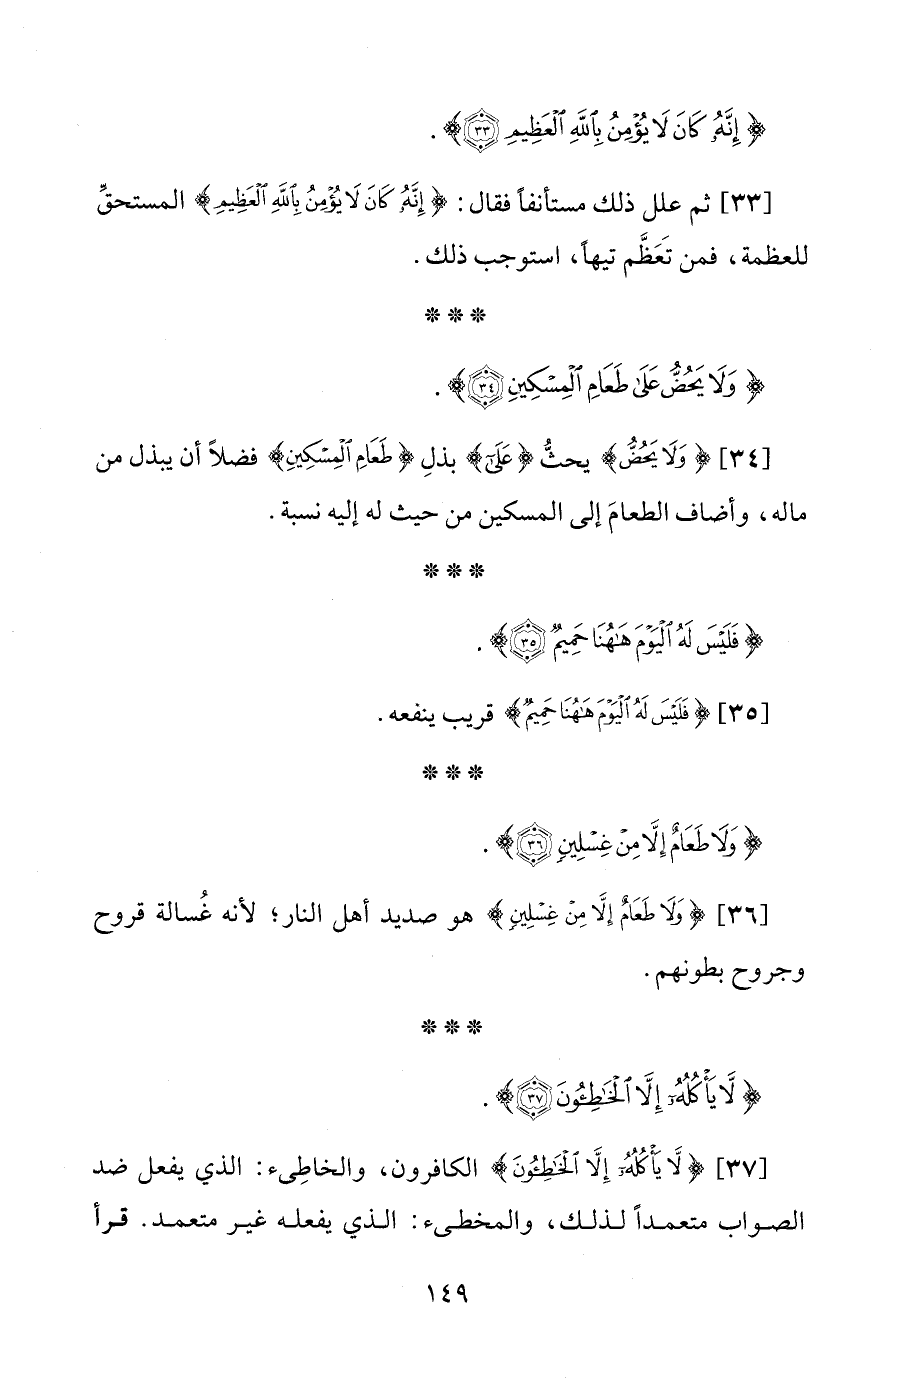 ﴿ إِنَّهُۥ كَانَ لَا يُؤْمِنُ بِٱللَّهِ ٱلْعَظِيمِ ٣٣ ﴾ .
[٣٣] ثم علل ذلك مستأنفاً فقال : ﴿ إِنَّهُۥ كَانَ لَا يُؤْمِنُ بِٱللَّهِ ٱلْعَظِيمِ ﴾ المستحقِّ
للعظمة ، فمن تَعَظَّم تيهاً ، استوجب ذلك .
* * *
﴿ وَلَا يَحُضُّ عَلَىٰ طَعَامِ ٱلْمِسْكِينِ ٣٤ ﴾ .
[٣٤] ﴿ وَلَا يَحُضُّ ﴾ يحثُّ ﴿ عَلَىٰ ﴾ بذلِ ﴿ طَعَامِ ٱلْمِسْكِينِ ﴾ فضلاً أن يبذل من
ماله ، وأضاف الطعامَ إلى المسكين من حيث له إليه نسبة .
* * *
﴿ فَلَيْسَ لَهُ ٱلْيَوْمَ هَٰهُنَا حَمِيمٌ ٣٥ ﴾ .
[٣٥] ﴿ فَلَيْسَ لَهُ ٱلْيَوْمَ هَٰهُنَا حَمِيمٌ ﴾ قريب ينفعه .
* * *
﴿ وَلَا طَعَامٌ إِلَّا مِنْ غِسْلِينٍ ٣٦ ﴾ .
[٣٦] ﴿ وَلَا طَعَامٌ إِلَّا مِنْ غِسْلِينٍ ﴾ هو صديد أهل النار ؛ لأنه غُسالة قروح
وجروح بطونهم .
* * *
﴿ لَّا يَأْكُلُهُۥٓ إِلَّا ٱلْخَٰطِـُٔونَ ٣٧ ﴾ .
[٣٧] ﴿ لَّا يَأْكُلُهُۥٓ إِلَّا ٱلْخَٰطِـُٔونَ ﴾ الكافرون ، والخاطِىء : الذي يفعل ضد
الصواب متعمداً لذلك ، والمخطىء : الذي يفعله غير متعمد . قرأ
١٤٩